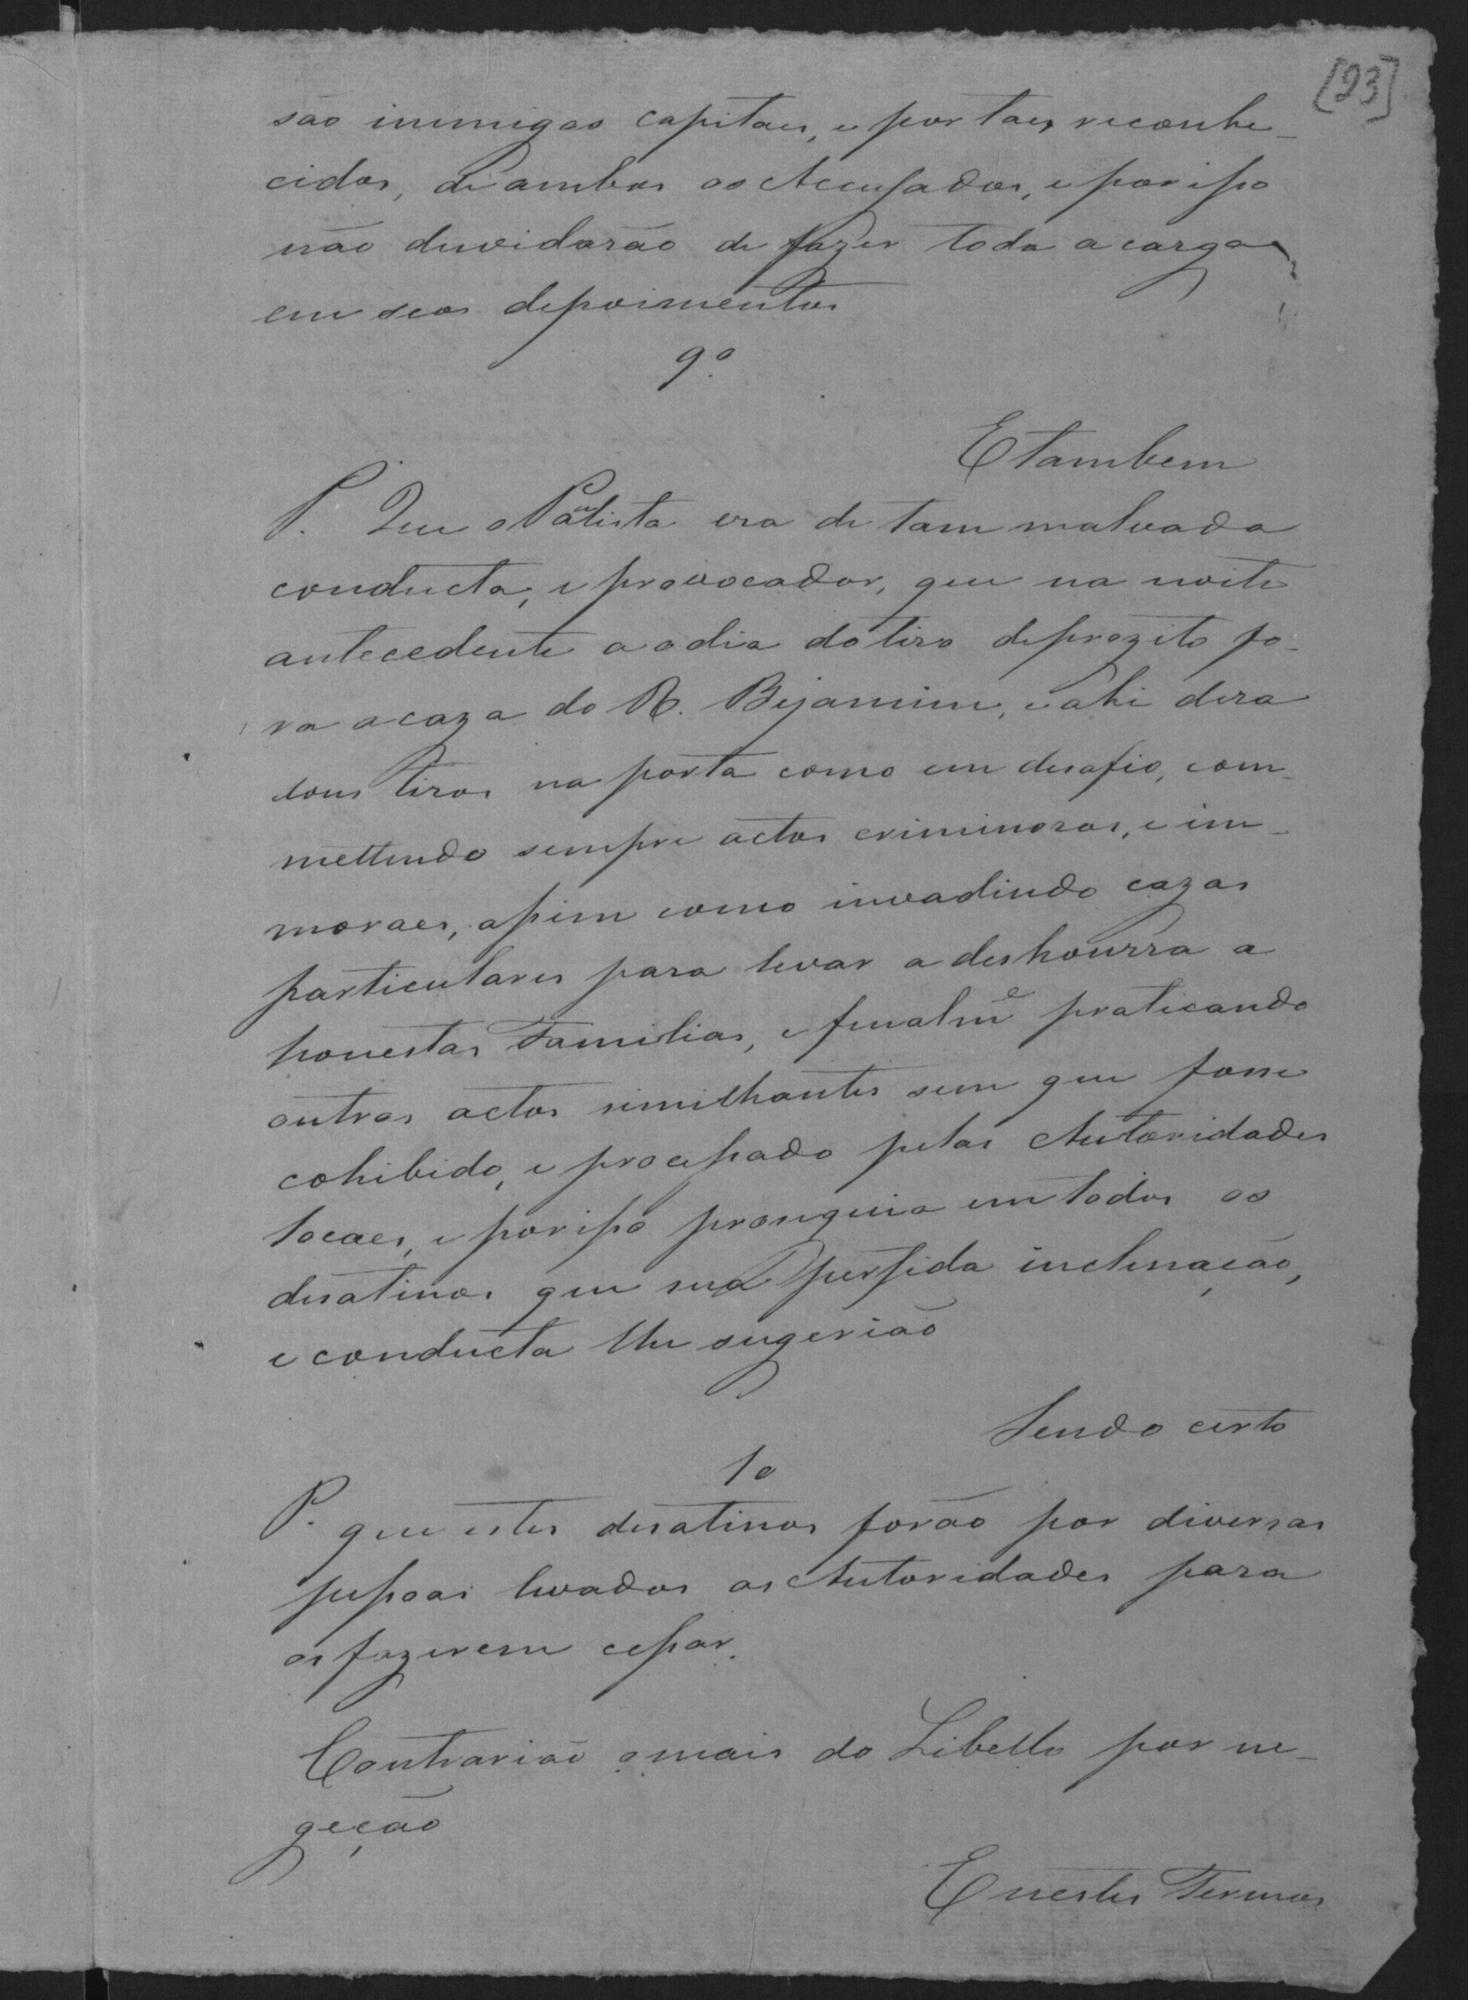 [23]
são inimigos capitaes, e por taes reconhe-
cidos, de ambos os Accusados, e por isso
não duvidarão de fazer toda a carga
em seos depoimentos
9º
E tambem
P. Que o Paulista era de tam malvada
conducta, e provocador, que na noite
antecedente ao dia do tiro deprozito fo-
ra a caza do R. Bejamim, e ahi dera
dous tiros na porta como em desafio, com-
mettendo sempre actos criminosos, e im-
moraes, assim como invadindo cazas
particulares para levar a deshonrra a
honestas Familias, e finalmᵉ praticando
outros actos similhantes sem que fosse
cohibido, e processado pelas Autoridades
locaes, e por isso proseguia em todos os
desatinos que sua perfida inclinação,
e conducta lhe sugerião
Sendo certo
10
P. que estes desatinos forão por diversas
pessoas levados as Autoridades para
os fazerem cessar.
Contrarião o mais do Libello por ne-
geção
E nestes Termos